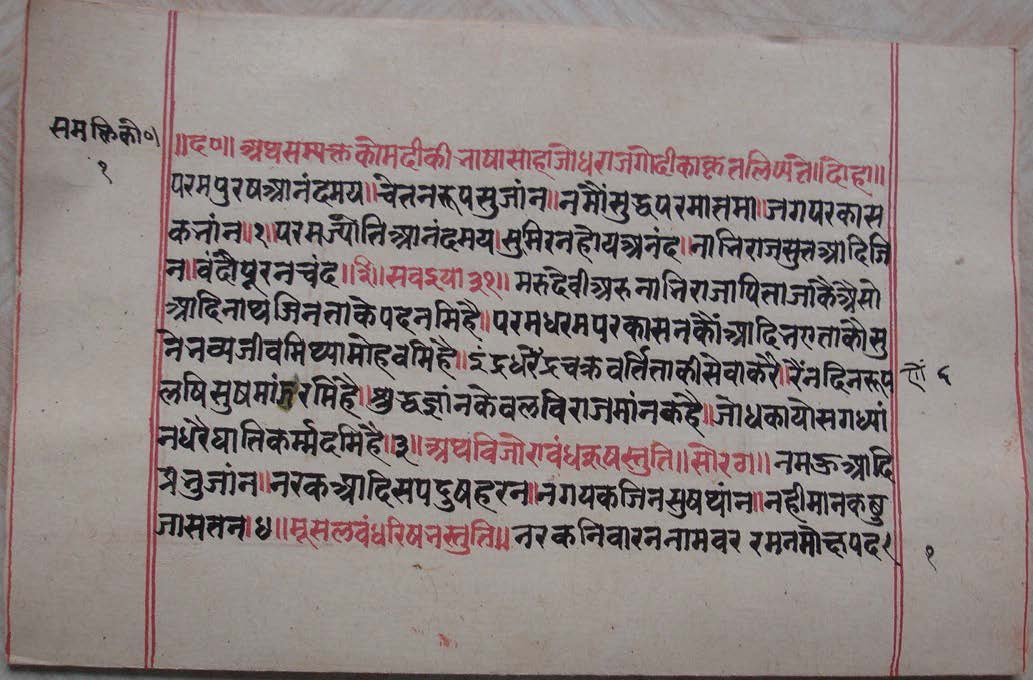 समक्तिकौ०।
१
॥द०॥ अथ सम्यक्त कौमदी की भाषा साहा जोधराज गोदीका कृत लिष्यते॥ दोहा॥
परमपुरष आनंदमय॥ चेतनरूप सुजांन॥ नमौं सुद्ध परमातमा॥ जगपरकास
कभांन॥१॥ परमज्योति आनंदमय। सुमिरन होय अनंद। नाभिराजसुत आदिजि
न॥ वंदौं पूरनचंद॥२॥ सवइया ३१॥ मरुदेवी अरु नाभिराजा पिता जाकै ऐसो
आदिनाथ जिन ताके पद नमिहै॥ परमधरम परकासनकौं आदि भए ताकौ सु
नै भव्यजीव मिथ्यामोह वमिहै॥ इंद्र धरेंद्र चक्रवर्त्ति ताकी सेवा करै॥ रैंन दिन रूप
लषि सुष मांझ रमिहै॥ शुद्धज्ञांन केवल विराजमांन कहै॥ जोध कायोसग ध्यां
न धरै घातिकर्म्म दमिहै॥३॥ अथ विजोरावंध स्तुति॥ सोरठा॥ नमऊ आदि
प्रभु जांन॥ नरक आदि सप दुष हरन॥ नगयक जिन सुष थांन॥ नही मान कछु
जास तन॥४॥ मूसलवंध रिषभस्तुति॥ नरक निवारन नाम वर रमन मोक्षपद
१